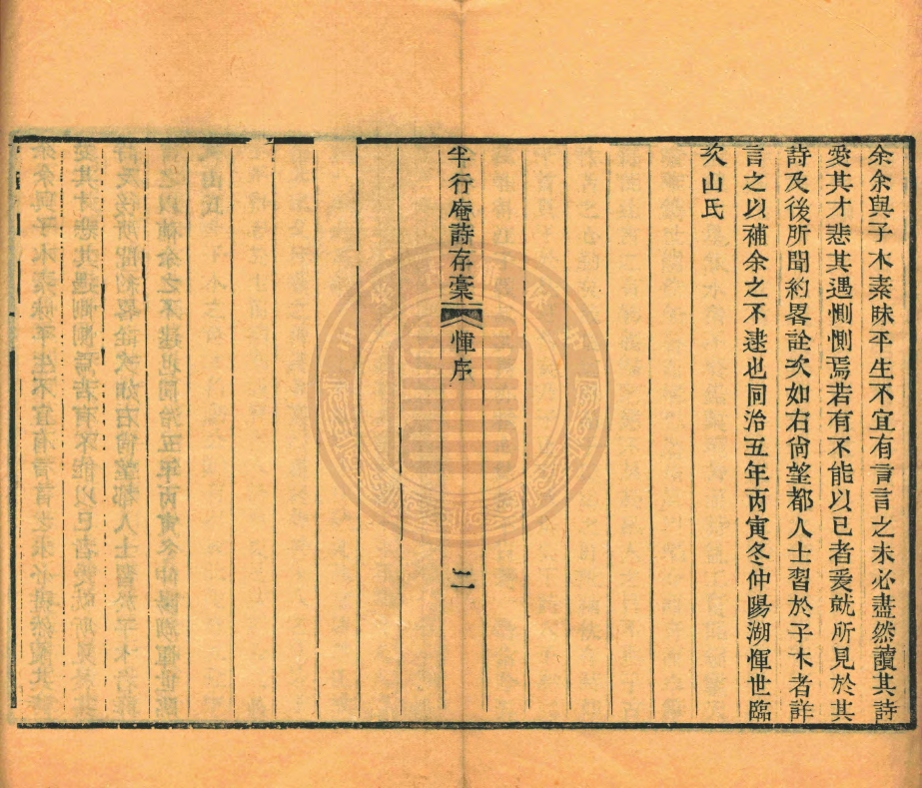 余余與子木素昧平生不宜有言言之未必盡然讀其詩
愛其才悲其遇惻惻焉若有不能以已者爰就所見於其
詩及後所聞約畧詮次如右尙望都人士習於子木者詳
言之以補余之不逮也同治五年丙寅冬仲陽湖惲世臨
次山氏
半行庵詩存稾 惲序 二